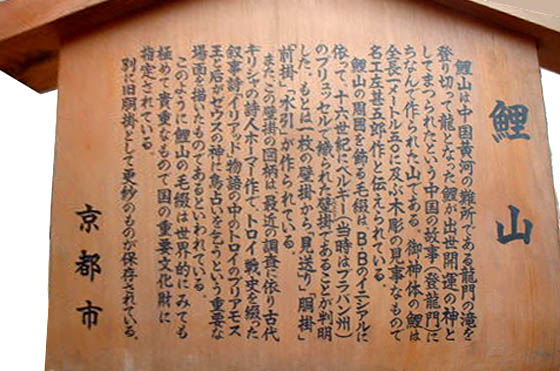 鯉山
鯉山は中国黄河の難所である龍門の滝を
登り切って龍となった鯉が出世開運の神と
してまつられたという中国の故事(登龍門)に
ちなんで作られた山である。御神体の鯉は
全長一メートル五〇に及ぶ木彫の見事なもので
名工左甚五郎作と伝えられている。
鯉山の周囲を飾る毛綴は、BBのイニシアルに
依って、十六世紀にベルギー(当時はブラバン州)
のブリュッセルで織られた壁掛であることが判明
した。もとは一枚の壁掛から「見送り」「胴掛」
「前掛」「水引」が作られている。
またこの壁掛の図柄は、最近の調査に依り古代
ギリシャの詩人ホーマー作で、トロイ戦史を綴った
叙事詩「イリアッド」物語の中のトロイのプリアモス
王と后がゼウスの神に鳥占いを乞うという重要な
場面を描いたものであるといわれている。
このように鯉山の毛綴は世界的にみても
極めて貴重なもので国の重要文化財に
指定されている。
別に旧胴掛として更紗のものが保存されている。
京都市